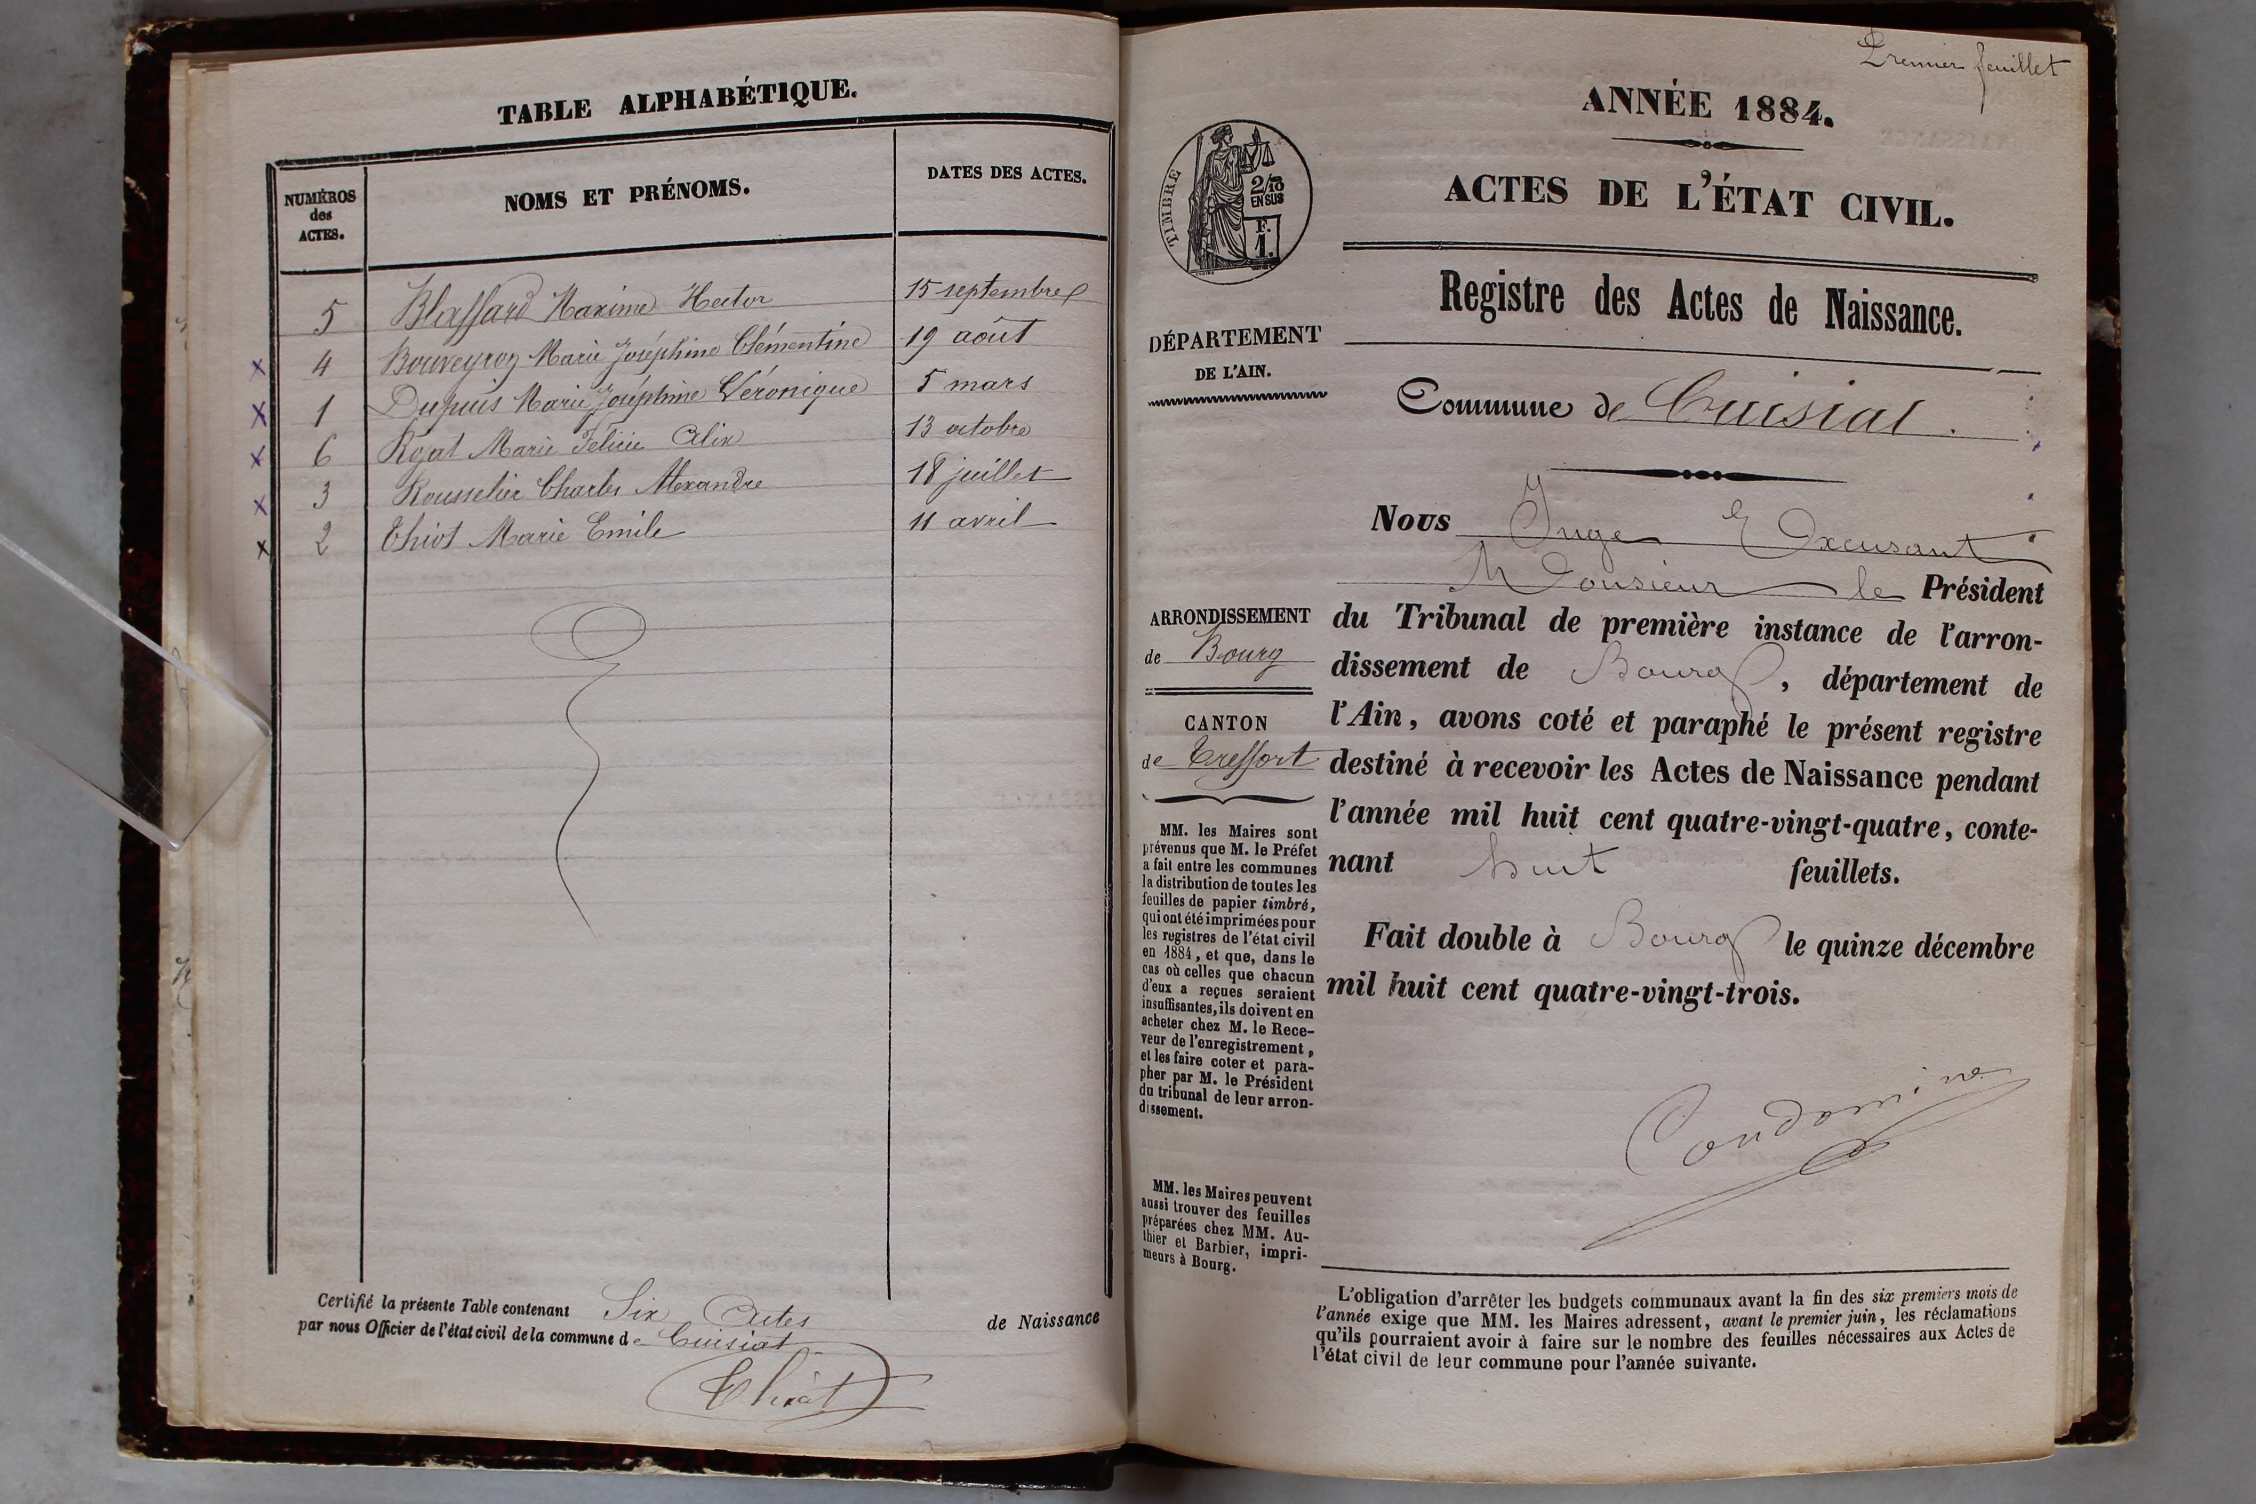 TABLE ALPHABÉTIQUE.
NUMÉROS
des
ACTES.
NOMS ET PRÉNOMS.
DATES DES ACTES.
5 Blaffard Maxime Hector 15 septembre
4 Bouveyron Marie Joséphine Clémentine 19 août
1 Dupuis Marie Joséphine Véronique 5 mars
6 Rojat Marie Félicie Alix 13 octobre
3 Rousselier Charles Alexandre 18 juillet
2 Thiot Marie Emile 11 avril
Certifié la présente Table contenant Six Actes de Naissance
par nous Officier de l'état civil de la commune de Cuisiat
Premier feuillet
ANNÉE 1884.
ACTES DE L'ÉTAT CIVIL.
TIMBRE
2/10
EN SUS
F.
1.
Registre des Actes de Naissance.
DÉPARTEMENT
DE L'AIN.
Commune de Cuisiat.
Nous Juge Excusant
Monsieur le Président
ARRONDISSEMENT
de Bourg
du Tribunal de première instance de l'arron-
dissement de Bourg, département de
l'Ain, avons coté et paraphé le présent registre
destiné à recevoir les Actes de Naissance pendant
l'année mil huit cent quatre-vingt-quatre, conte-
nant huit feuillets.
Fait double à Bourg le quinze décembre
mil huit cent quatre-vingt-trois.
CANTON
de Treffort
MM. les Maires sont
prévenus que M. le Préfet
a fait entre les communes
la distribution de toutes les
feuilles de papier timbré,
qui ont été imprimées pour
les registres de l'état civil
en 1884, et que, dans le
cas où celles que chacun
d'eux a reçues seraient
insuffisantes, ils doivent en
acheter chez M. le Rece-
veur de l'enregistrement,
et les faire coter et para-
pher par M. le Président
du tribunal de leur arron-
dissement.
Condamine
MM. les Maires peuvent
aussi trouver des feuilles
préparées chez MM. Au-
thier et Barbier, impri-
meurs à Bourg.
L'obligation d'arrêter les budgets communaux avant la fin des six premiers mois de
l'année exige que MM. les Maires adressent, avant le premier juin, les réclamations
qu'ils pourraient avoir à faire sur le nombre des feuilles nécessaires aux Actes de
l'état civil de leur commune pour l'année suivante.